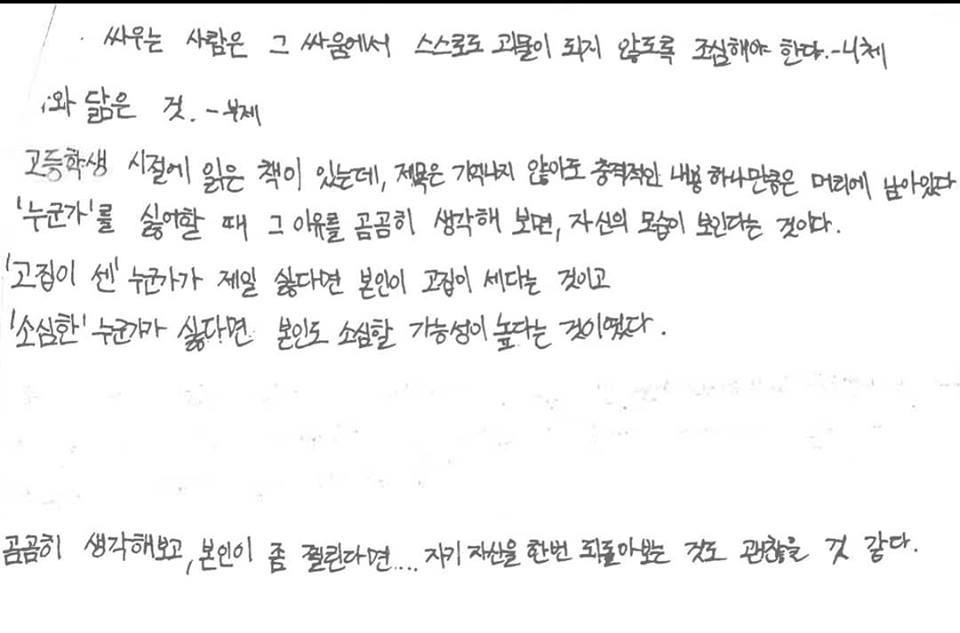 싸우는 사람은 그 싸움에서 스스로도 괴물이 되지 않도록 조심해야 한다.-니체
와 닮은 것. -부제
고등학생 시절에 읽은 책이 있는데, 제목은 기억나지 않아도 충격적인 내용 하나만큼은 머리에 남아있다
'누군가'를 싫어할 때 그 이유를 곰곰히 생각해 보면, 자신의 모습이 보인다는 것이다.
'고집이 센' 누군가가 제일 싫다면 본인이 고집이 세다는 것이고
'소심한' 누군가가 싫다면 본인도 소심할 가능성이 높다는 것이였다.
곰곰히 생각해보고, 본인이 좀 찔린다면.... 자기 자신을 한번 되돌아보는 것도 괜찮을 것 같다.